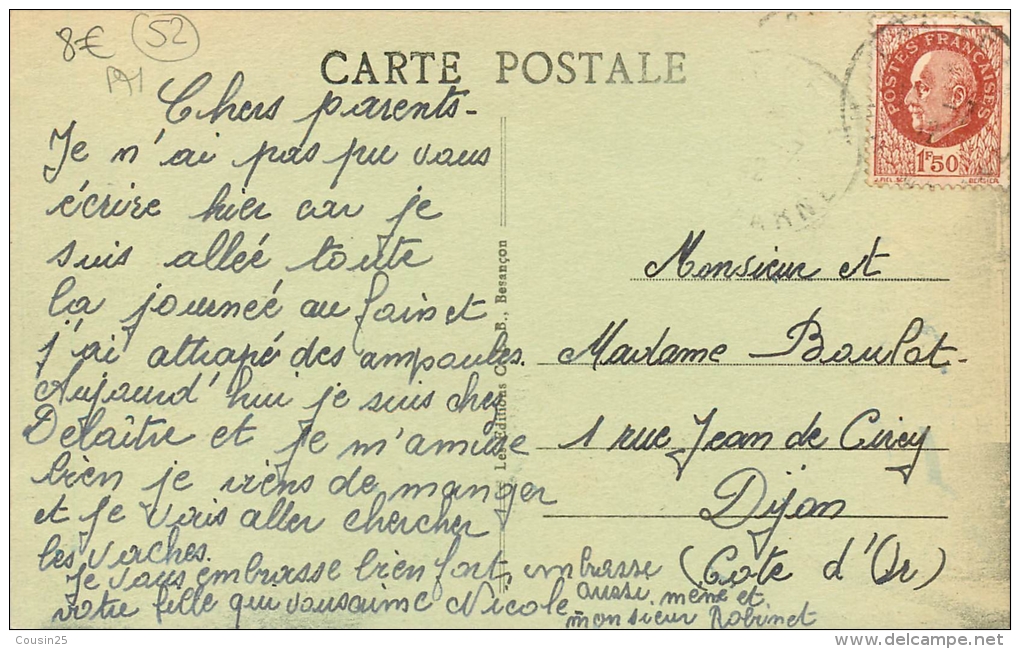 8€ 52
CARTE POSTALE
POSTES FRANÇAISES
1F50
Chers parents-
Je n'ai pas pu vous
écrire hier car je
suis allée toute
la journeé au foin et
j'ai attrapé des ampoules.
Aujourd'hui je suis ches
Delaître et je m'amuse
bien je viens de manger
et je vais aller chercher
les vaches.
Je vous embrasse bien fort, embrasse
votre fille qui vous aime Nicole
aussi mémé et
monsieur Robinet
Les Editions C. B., Besançon
Monsieur et
Madame Boulot-
1 rue Jean de Cirey
Dijon
(Cote d'Or)
Cousin25
delcampe.net